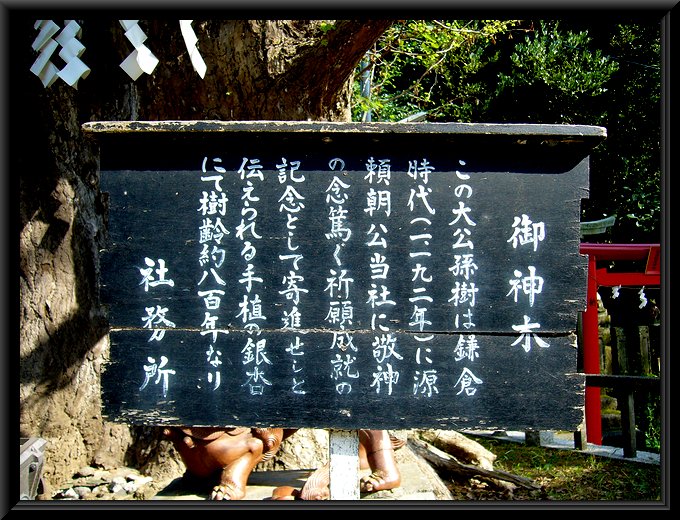 御神木
この大公孫樹は鎌倉
時代(一一九二年)に源
頼朝公当社に敬神
の念篤く祈願成就の
記念として寄進せしと
伝えられる手植の銀杏
にて樹齢約八百年なり
社務所